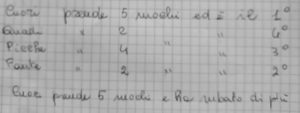 Cuori prende 5 mochi ed è il 1°
Quadri " 2 " " 4°
Picche " 4 " " 3°
Fante " 2 " " 2°
Cuori prende 5 mochi e ha rubato di più